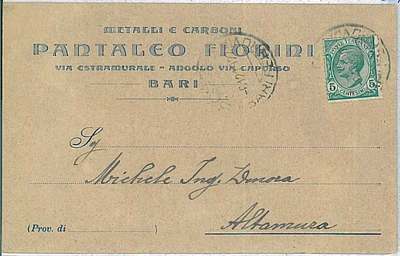 METALLI E CARBONI
PANTALEO FIORINI
VIA ESTRAMURALE - ANGOLO VIA CAPURSO
BARI
5
5
CENTESIMI
Sig
Michele Ing. Denora
Altamura
(Prov. di )